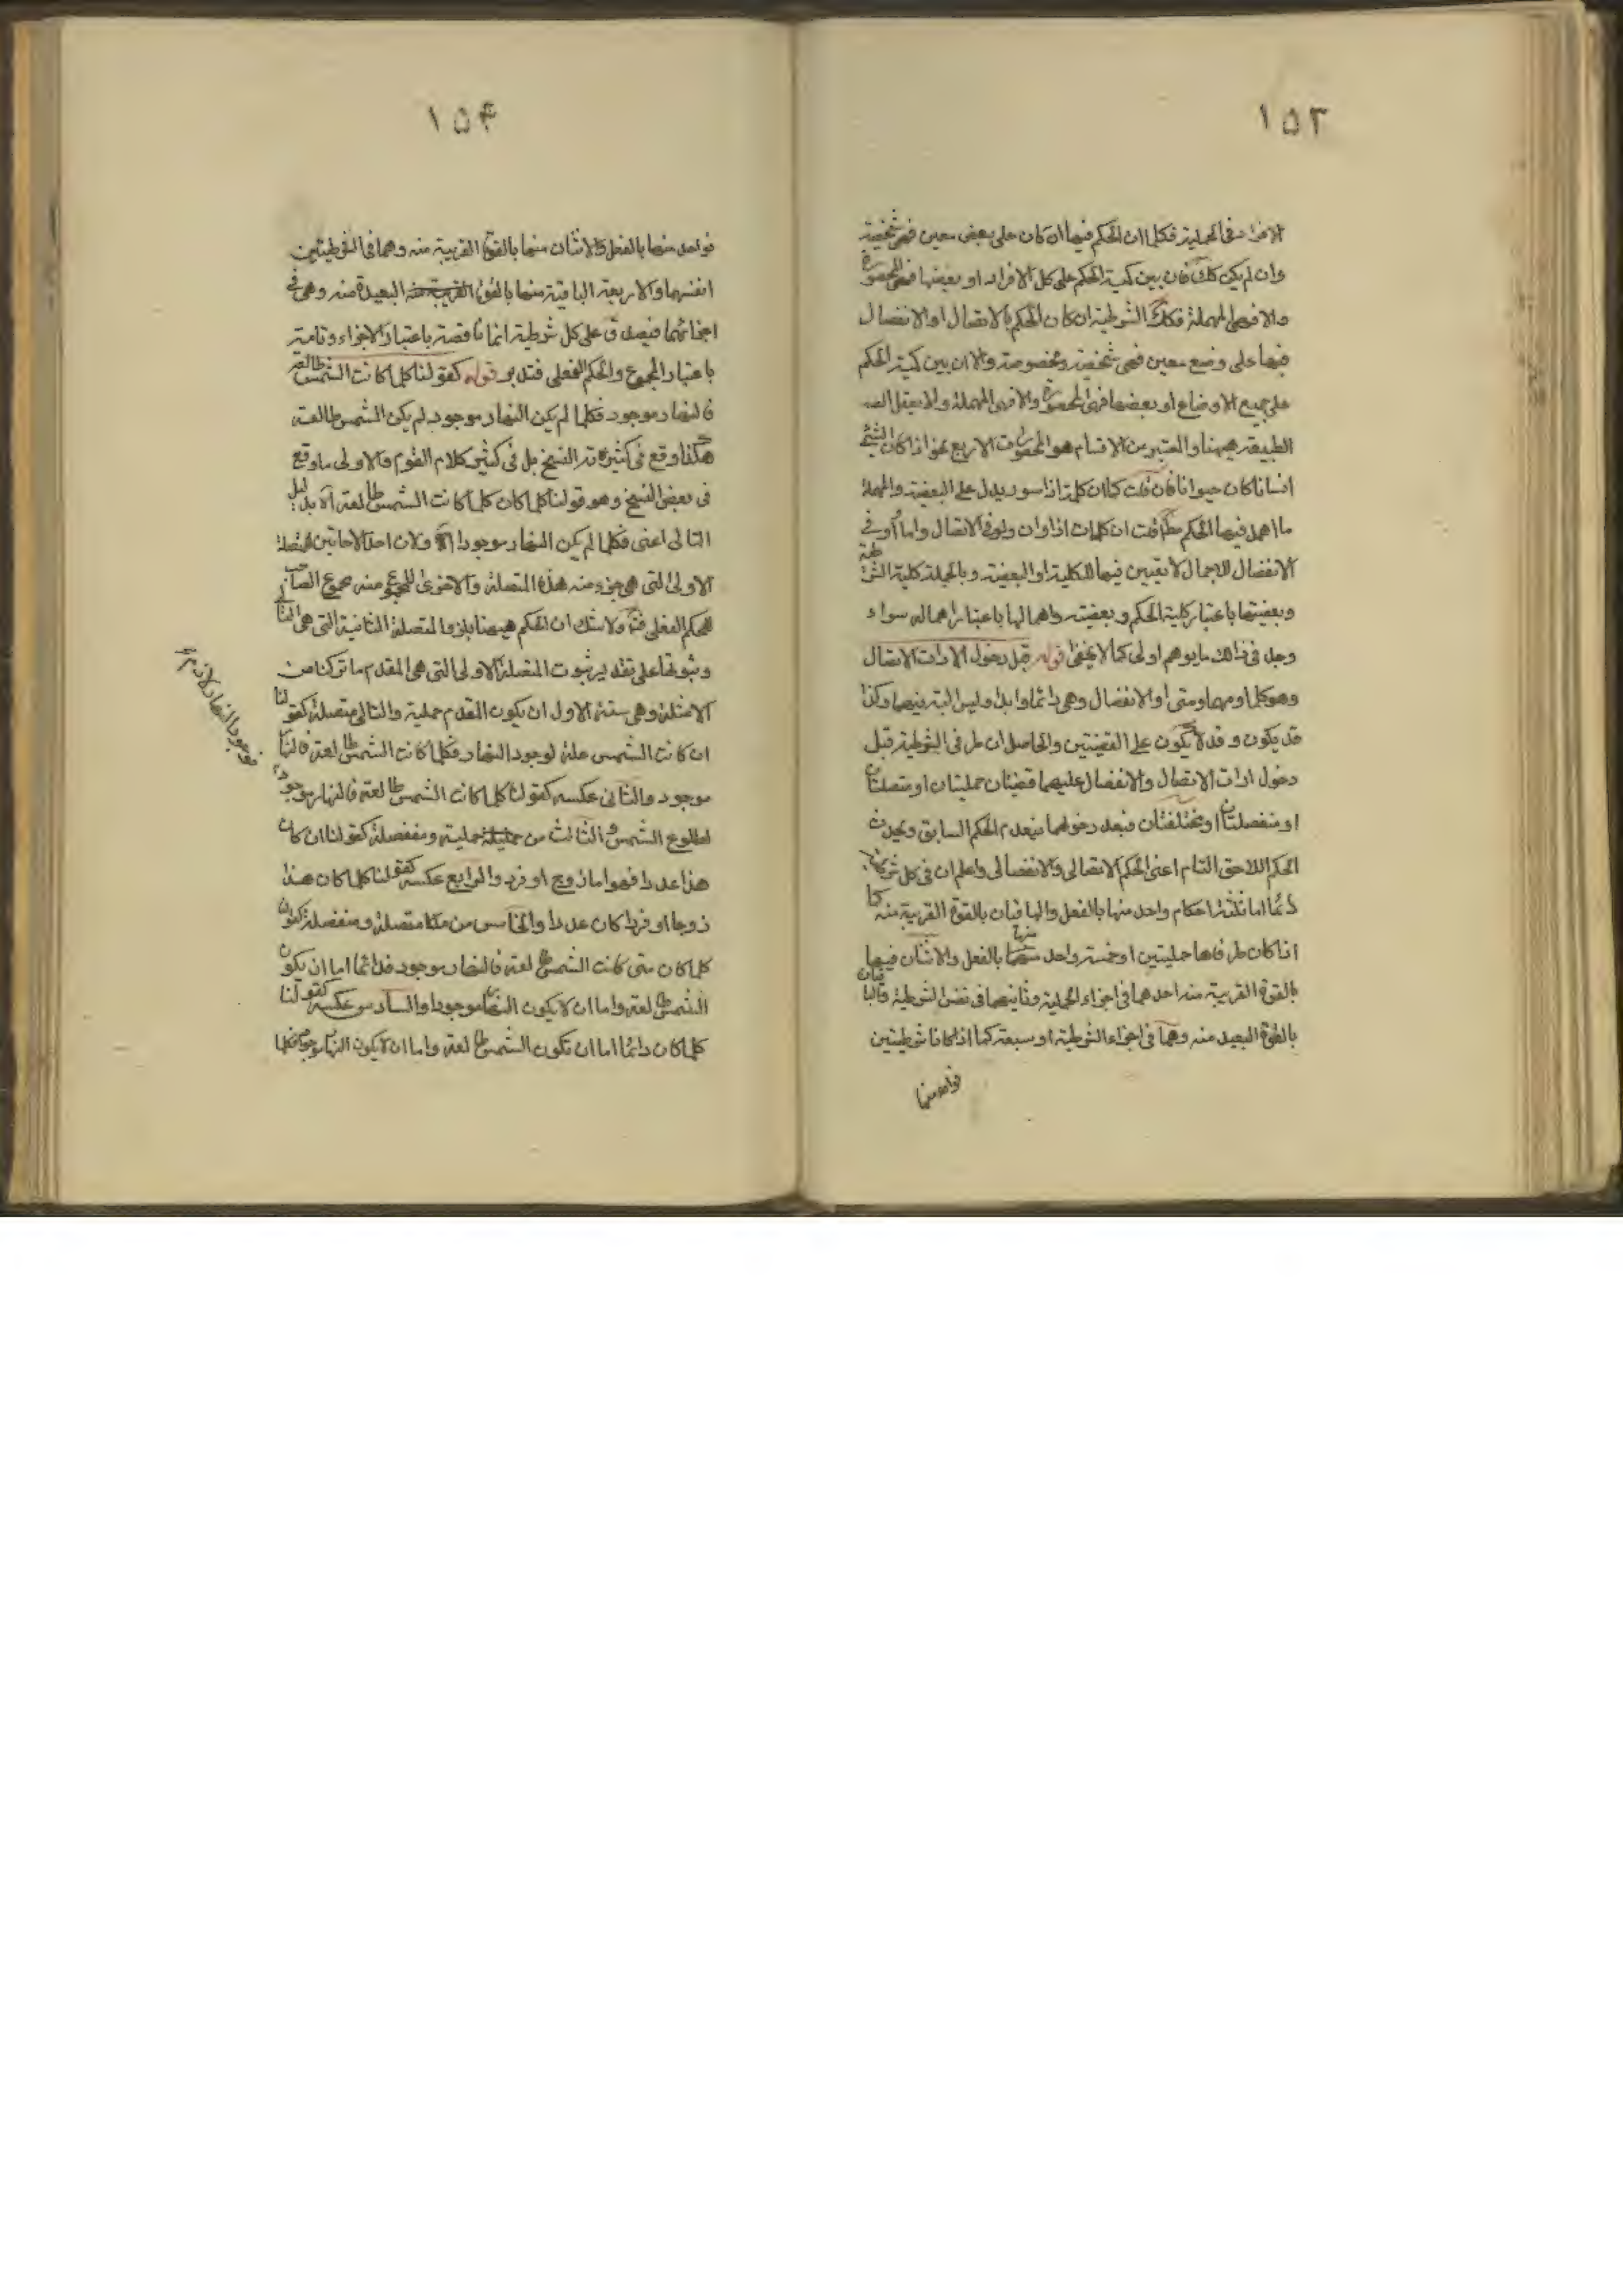 ١٥٣
الافراد فى الحملية فكما ان الحكم فيها ان كان على بعض معين فهى شخصية
وان لم يكن كك فان بين كمية الحكم على كل الافراد او بعضها فهى المحصورة
والا فهى المهملة فكك الشرطية ان كان الحكم بالاتصال او الانفصال
فيها على وضع معين فهى شخصية ومخصوصة والا ان بين كمية الحكم
على جميع الاوضاع او بعضها فهى المحصورة والا فهى المهملة ولا يعقل
الطبيعة ههنا والمعتبر من الاقسام هو المحصورات الاربع نحو اذا كان الشئ
انسانا كان حيوانا فان قلت كما ان كلمة اذا سور يدل على البعضية والمهملة
ما اهمل فيها الحكم قلت ان كلمات اذا وان ولو فى الاتصال واما او فى
الانفصال للاجمال لا تعيين فيها للكلية او البعضية وبالجملة كلية الشرطية
وبعضيتها باعتبار كلية الحكم وبعضيته واهمالها باعتبار اهماله سواء
وجد فى ذلك ما يوهم اولى كما لا يخفى قوله قبل دخول الادات الاتصال
وهو كلما ومهما ومتى او الانفصال وهى دائما وابدا وليس البتة فيهما وكذا
قد يكون وقد لا يكون على القضيتين والحاصل ان طرفى الشرطية قبل
دخول ادات الاتصال والانفصال عليهما قضيتان حمليتان او متصلتان
او منفصلتان او مختلفتان فبعد دخولهما ينعدم الحكم السابق ويحدث
الحكم اللاحق التام اعنى الحكم الاتصالى والانفصالى واعلم ان فى كل شرطية
دائما اما ثلثة احكام واحد منها بالفعل والباقيان بالقوة القريبة منه كما
اذا كان طرفاها حمليتين او خمسة واحد منها بالفعل والاثنان فيها
بالقوة القريبة منه احدهما فى اجزاء الحملية وثانيهما فى نفس الشرطية والباقيان
بالقوة البعيد منه وهما فى اجزاء الشرطية او سبعة كما اذا كانا شرطيتين
فواحد منها
١٥۴
فواحد منها بالفعل والاثنان منها بالقوة القريبة منه وهما فى الشرطيتين
انفسهما والاربعة الباقية منها بالقوة البعيدة منه وهى فى
اجزائهما فيصدق على كل شرطية انها ناقصة باعتبار الاجزاء وتامة
باعتبار المجموع والحكم الفعلى فتدبر قوله كقولنا كلما كانت الشمس طالعة
فالنهار موجود فكلما لم يكن النهار موجود لم يكن الشمس طالعة
هكذا وقع فى كثيرة من النسخ بل فى كثير كلام القوم والاولى ما وقع
فى بعض النسخ وهو قولنا كلما كان كلما كانت الشمس طالعة
التالى اعنى فكلما لم يكن النهار موجودا
الاولى التى هى جزء منه هذه المتصلة والاخرى المجموع منه مجموع
للحكم الفعلى ولا شك ان الحكم ههنا بلزوم المتصلة الثانية التى هى التالى
وثبوتها على تقدير ثبوت المتصلة الاولى التى هى المقدم ما تركنا من
الامثلة وهى ستة الاول ان يكون المقدم حملية والتالى متصلة كقولنا
ان كانت الشمس علة لوجود النهار فكلما كانت الشمس طالعة فالنهار
موجود والثانى عكسه كقولنا كلما كانت الشمس طالعة فالنهار موجود
لطلوع الشمس والثالث من حملية ومنفصلة كقولنا ان كان
هذا عددا فهو اما زوج او فرد والرابع عكسه كقولنا كلما كان هذا
زوجا او فردا كان عددا والخامس من متصلة ومنفصلة كقولنا
كلما كان متى كانت الشمس طالعة فالنهار موجود فدائما اما ان يكون
الشمس طالعة واما ان لا يكون النهار موجودا والسادس عكسه كقولنا
كلما كان دائما اما ان تكون الشمس طالعة واما ان لا يكون النهار موجودا فكلما